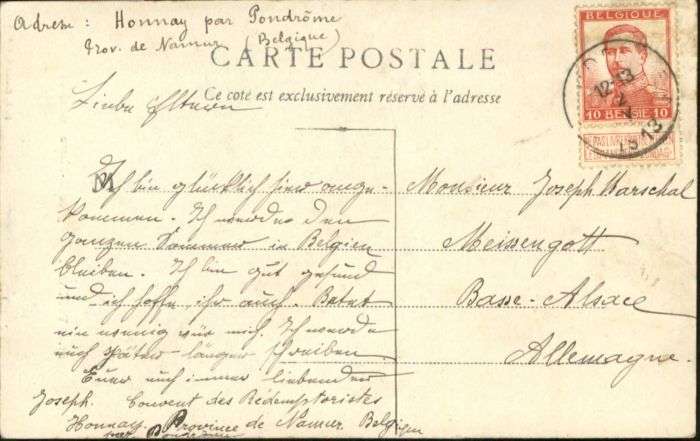 Adresse: Honnay par Pondrôme
Prov. de Namur (Belgique)
CARTE POSTALE
Ce côté est exclusivement réservé à l'adresse
Liebe Eltern
Ich bin glücklich hier ange-
kommen. Ich werde den
ganzen Sommer in Belgien
bleiben. Ich bin gut gesund
und ich hoffe ihr auch. Betet
ein wenig für mich. Ich werde
euch später länger schreiben
Euer euch immer liebender
Joseph. Couvent des Redemptoristes
Honnay, Province de Namur. Belgique
BELGIQUE
10 BELGIE 10
12-13
V
1913
Monsieur Joseph Marschal
Meissengott
Basse-Alsace
Allemagne.